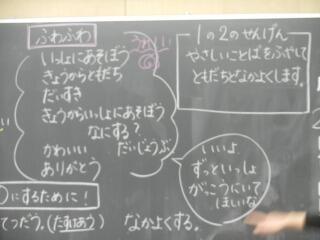 ふわふわ
いっしょにあそぼう
きょうからともだち
だいすき
きょうからいっしょにあそぼう
なにする?
かわいい だいじょうぶ
ありがとう
1の2のせんげん
やさしいことばをふやして
ともだちとなかよくします。
いいよ
ずっといっしょ
がっこうにいて
ほしいな
にするために!
てつだう。(たすけあう) なかよくする。